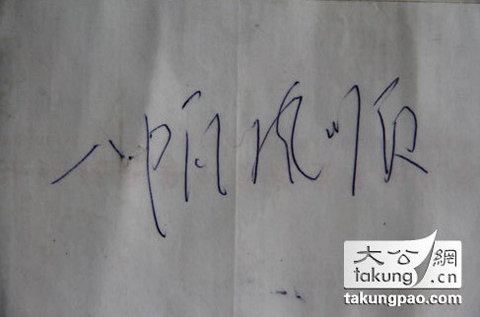 一帆风顺
大公網
takung.cn
takungpao.com